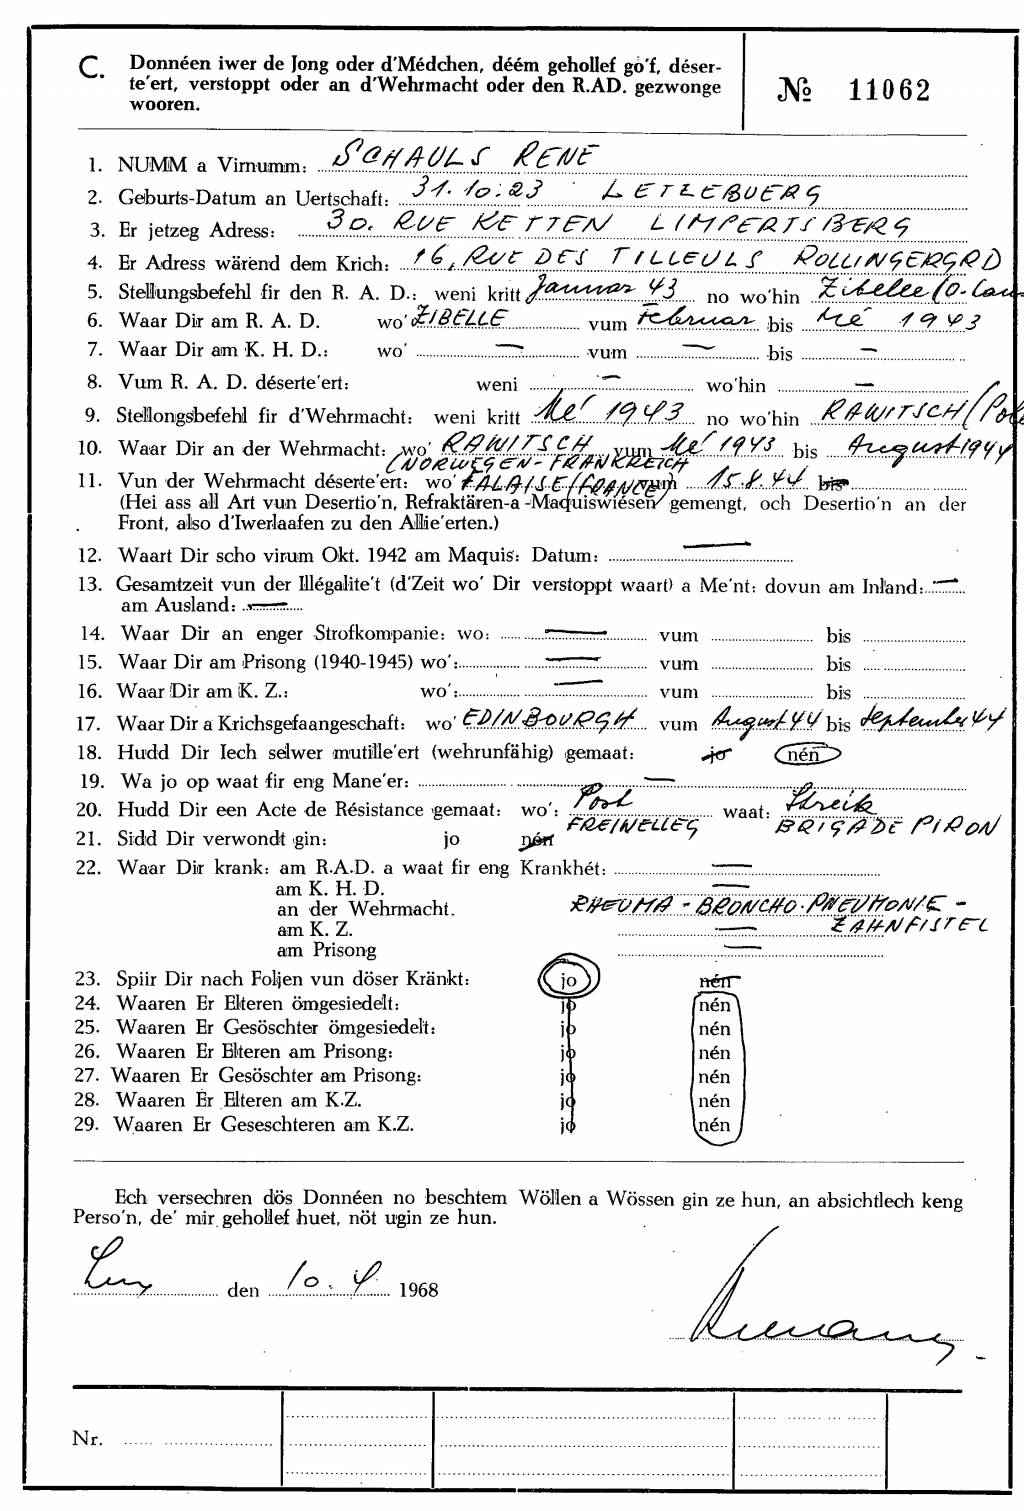 C. Donnéen iwer de Jong oder d'Médchen, déém gehollef go'f, déser-
te'ert, verstoppt oder an d'Wehrmacht oder den R.AD. gezwonge
wooren.
№ 11062
1. NUMM a Virnumm: SCHAULS RENE
2. Geburts-Datum an Uertschaft: 31.10.23 LETZEBUERG
3. Er jetzeg Adress: 30. RUE KETTEN LIMPERTSBERG
4. Er Adress wärend dem Krich: 16, RUE DES TILLEULS ROLLINGERGRD
5. Stellungsbefehl fir den R. A. D.: weni kritt Januar 43 no wo'hin Zibelle (O.Laus
6. Waar Dir am R. A. D. wo' ZIBELLE vum Februar bis Mé 1943
7. Waar Dir am K. H. D.: wo' — vum — bis —
8. Vum R. A. D. déserte'ert: weni — wo'hin —
9. Stellongsbefehl fir d'Wehrmacht: weni kritt Mé 1943 no wo'hin RAWITSCH (Pole
10. Waar Dir an der Wehrmacht: wo' RAWITSCH vum Mé 1943 bis August 1944
(NORWEGEN-FRANKREICH
11. Vun der Wehrmacht déserte'ert: wo' FALAISE (FRANCE) vum 15.8.44 bis
(Hei ass all Art vun Desertio'n, Refraktären-a-Maquiswiesen gemengt, och Desertio'n an der
Front, also d'Iwerlaafen zu den Allie'erten.)
12. Waart Dir scho virum Okt. 1942 am Maquis: Datum: —
13. Gesamtzeit vun der Illégalite't (d'Zeit wo' Dir verstoppt waart) a Me'nt: dovun am Inland: —
am Ausland: —
14. Waar Dir an enger Strofkompanie: wo: — vum bis
15. Waar Dir am Prisong (1940-1945) wo': — vum bis
16. Waar Dir am K. Z.: wo': — vum bis
17. Waar Dir a Krichsgefaangeschaft: wo' EDINBOURGH vum August 44 bis September 44
18. Hudd Dir Iech selwer mutille'ert (wehrunfähig) gemaat: jo nén
19. Wa jo op waat fir eng Mane'er: —
20. Hudd Dir een Acte de Résistance gemaat: wo': Post waat: Streik
FREINELLEG BRIGADE PIRON
21. Sidd Dir verwondt gin: jo nén
22. Waar Dir krank: am R.A.D. a waat fir eng Krankhét: —
am K. H. D. —
an der Wehrmacht. RHEUMA - BRONCHO-PNEUMONIE -
ZAHNFISTEL
am K. Z. —
am Prisong —
23. Spiir Dir nach Foljen vun döser Kränkt: jo nén
24. Waaren Er Elteren ömgesiedelt: jo nén
25. Waaren Er Gesöschter ömgesiedelt: jo nén
26. Waaren Er Elteren am Prisong: jo nén
27. Waaren Er Gesöschter am Prisong: jo nén
28. Waaren Er Elteren am K.Z. jo nén
29. Waaren Er Geseschteren am K.Z. jo nén
Ech versechren dös Donnéen no beschtem Wöllen a Wössen gin ze hun, an absichtlech keng
Perso'n, de' mir gehollef huet, nöt ugin ze hun.
Lux den 10. 4 1968
Nr.